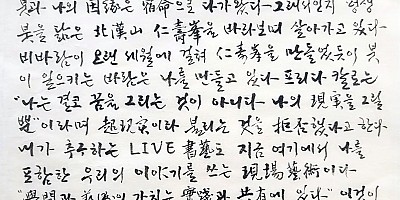 붓과 나의 因緣은 宿命으로 다가왔다 그래서인지 항상
붓을 닮은 北漢山 仁壽峯을 바라보며 살아가고 있다
비바람이 오랜 세월에 걸쳐 仁壽峯을 만들었듯이 붓
이 일으키는 바람은 나를 만들고 있다 프리다 칼로는
"나는 결코 꿈을 그리는 것이 아니다 나의 現實을 그릴
뿐"이라며 超現實이라 불리는 것을 拒否했다고 한다
내가 추구하는 LIVE 書藝도 지금 여기에서 나를
포함한 우리의 이야기를 쓰는 現場藝術이다
"學問과 藝術의 가치는 實踐과 共有에 있다" 이것이